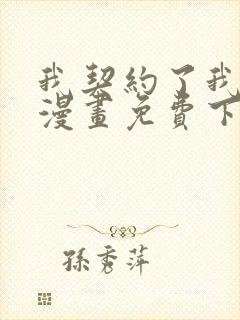 我契約了我
漫畫免費下
孫秀萍